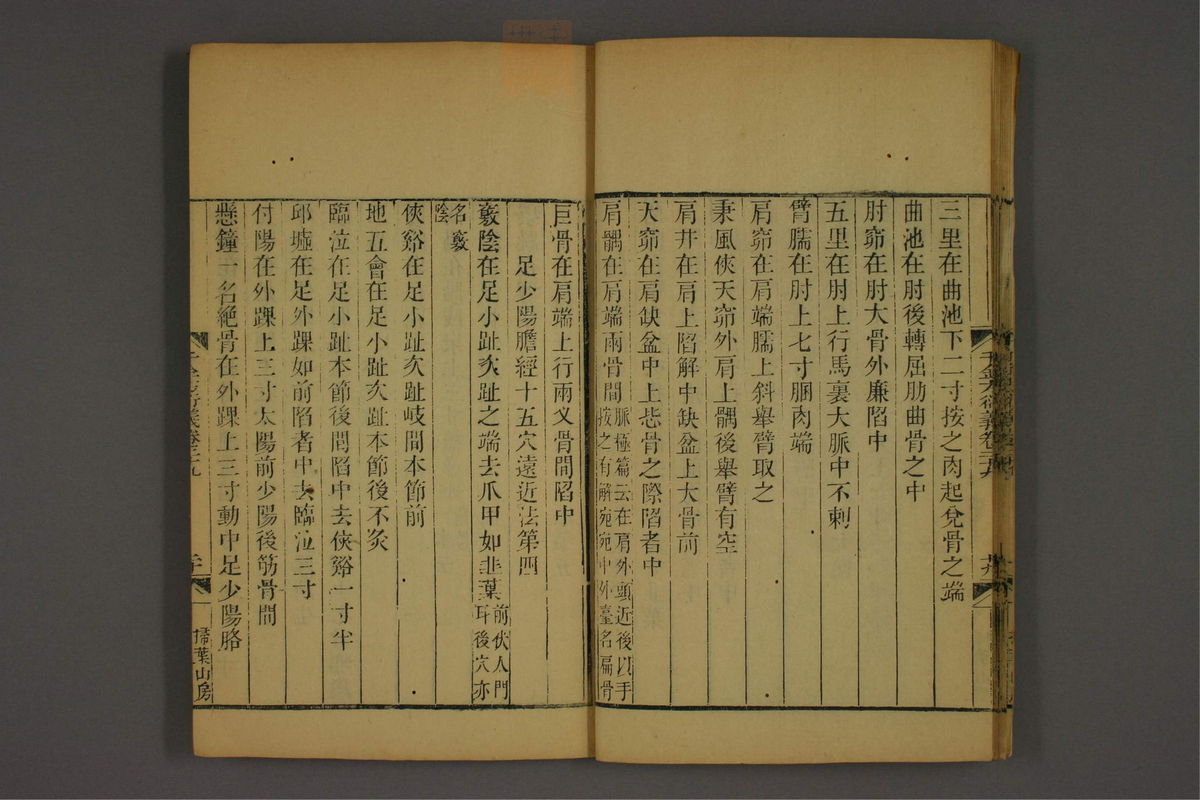 三里在曲池下二寸按之肉起兌骨之端
曲池在肘後轉屈肋曲骨之中
肘窌在肘大骨外廉陷中
五里在肘上行馬裏大脈中不刺
臂臑在肘上七寸䐃肉端
肩窌在肩端臑上斜舉臂取之
秉風俠天窌外肩上髃後舉臂有空
肩井在肩上陷解中缺盆上大骨前
天窌在肩缺盆中上毖骨之際陷者中
肩髃在肩端兩骨間
脈極篇云在肩外頭近後以手
按之有解宛宛中外臺名扁骨
巨骨在肩端上行兩叉骨間陷中
足少陽膽經十五穴遠近法第四
竅陰在足小趾次趾之端去爪甲如韭葉
前伏人門
耳後穴亦
名竅
陰
俠谿在足小趾次趾岐間本節前
地五會在足小趾次趾本節後不灸
臨泣在足小趾本節後間陷中去俠谿一寸半
邱墟在足外踝如前陷者中去臨泣三寸
付陽在外踝上三寸太陽前少陽後筋骨間
懸鐘一名絕骨在外踝上三寸動中足少陽胳
千金方衍義卷二十九
二十
掃葉山房